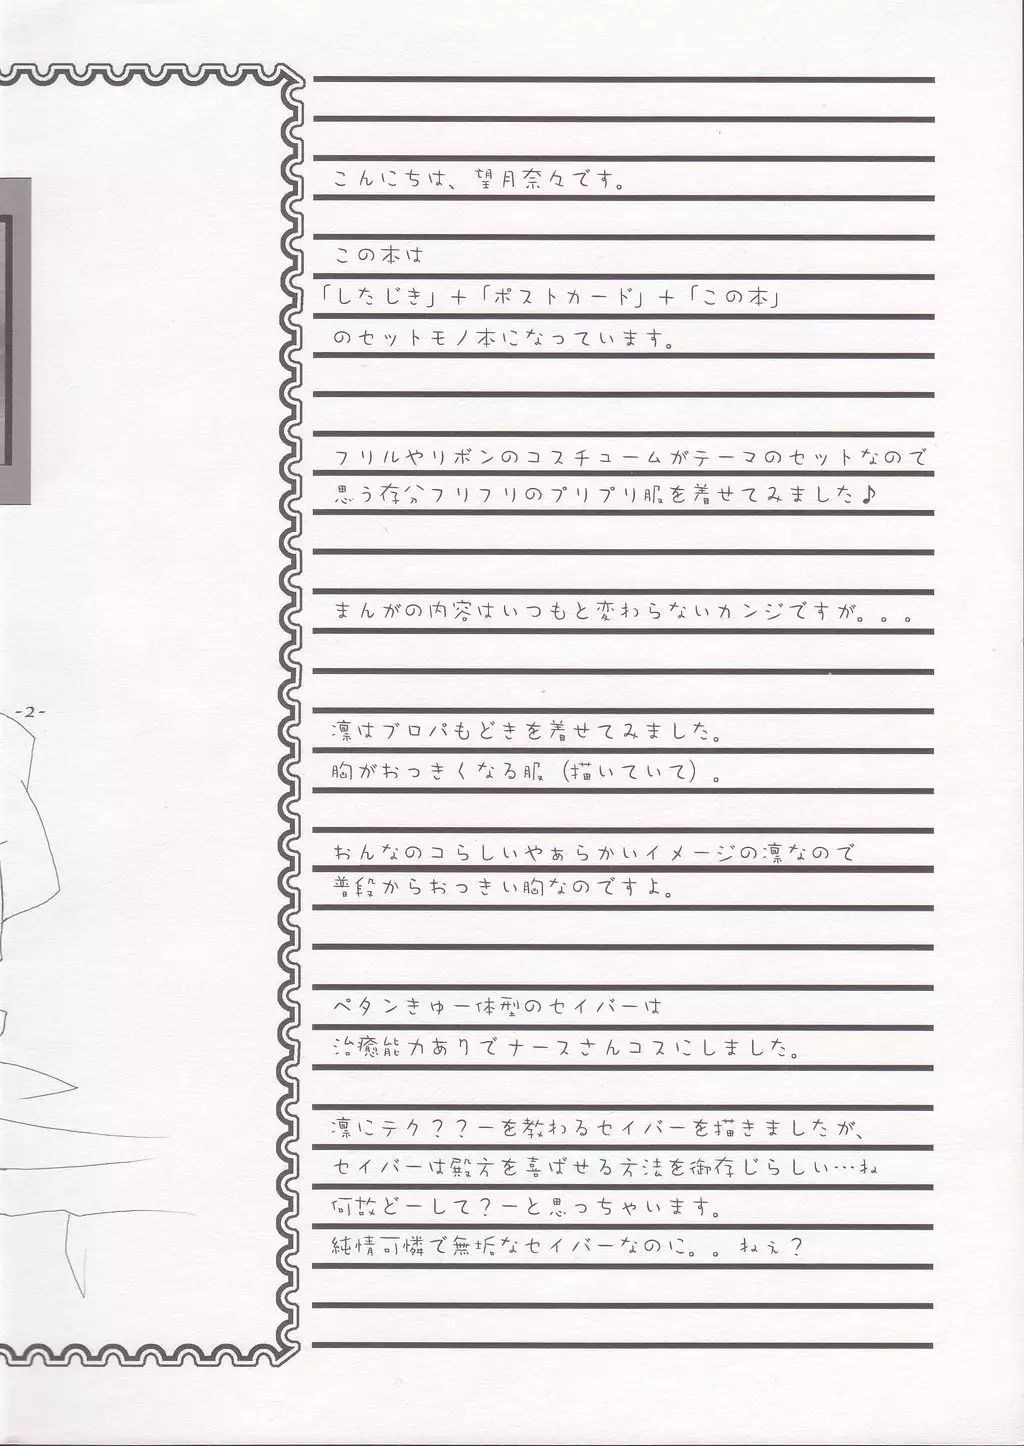 こんにちは、望月奈々です。
この本は
「したじき」＋「ポストカード」＋「この本」
のセットモノ本になっています。
フリルやリボンのコスチュームがテーマのセットなので
思う存分フリフリのプリプリ服を着せてみました♪
まんがの内容はいつもと変わらないカンジですが。。。
凛はブロパもどきを着せてみました。
胸がおっきくなる服（描いていて）。
おんなのコらしいやぁらかいイメージの凛なので
普段からおっきい胸なのですよ。
ペタンきゅー体型のセイバーは
治癒能力ありでナースさんコスにしました。
凛にテク？？ーを教わるセイバーを描きましたが、
セイバーは殿方を喜ばせる方法を御存じらしい…ね
何故どーして？ーと思っちゃいます。
純情可憐で無垢なセイバーなのに。。ねぇ？
-2-